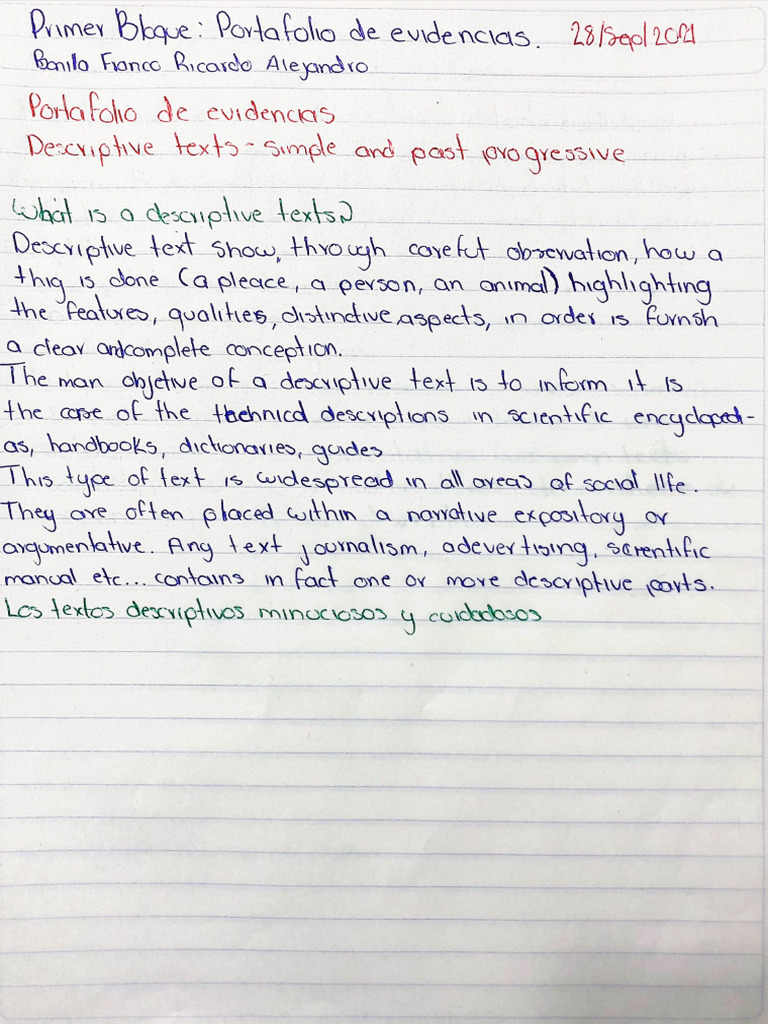 Primer Bloque: Portafolio de evidencias. 28/Sep/2021
Bonilla Franco Ricardo Alejandro
Portafolio de evidencias
Descriptive texts - simple and past progressive
What is a descriptive texts?
Descriptive text show, through careful observation, how a
thig is done (a pleace, a person, an animal) highlighting
the features, qualities, distinctive aspects, in order is furnsh
a clear and complete conception.
The man objetive of a descriptive text is to inform it is
the case of the technicd descriptions in scientific encycloped-
as, handbooks, dictionaries, guides
This type of text is widespread in all areas of social life.
They are often placed within a narrative expository or
argumentative. Any text journalism, adevertising, scientific
manual etc... contains in fact one or more descriptive parts.
Los textos descriptivos minuciosos y cuidadosos